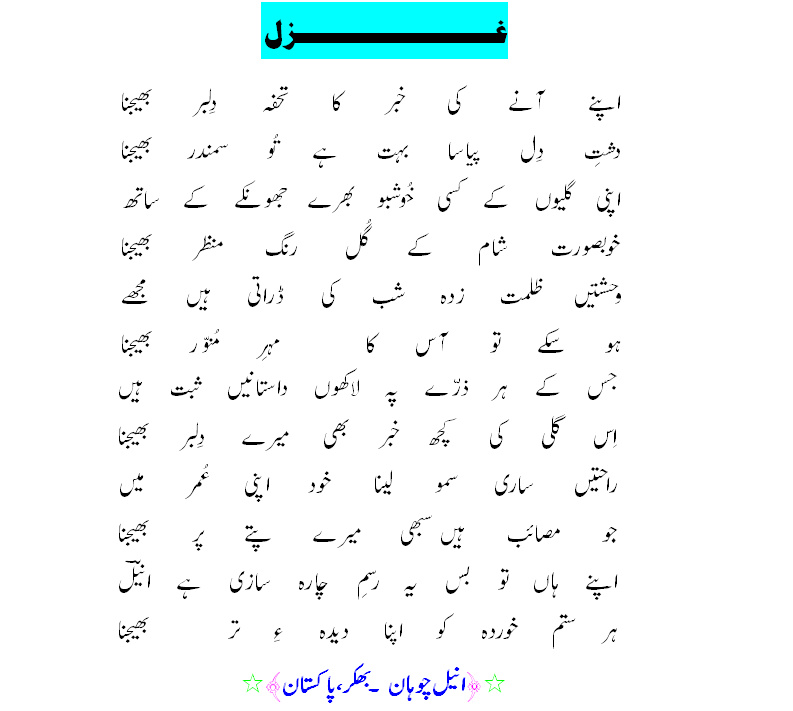 غـــزل
اپنے آنے کی خبر کا تحفہ دِلبر بھیجنا
دشتِ دِل پیاسا بہت ہے تُو سمندر بھیجنا
اپنی گلیوں کے کسی خُوشبو بھرے جھونکے کے ساتھ
خوبصورت شام کے گُل رنگ منظر بھیجنا
وحشتیں ظلمت زدہ شب کی ڈراتی ہیں مجھے
ہو سکے تو آس کا مہرِ مُنوّر بھیجنا
جس کے ہر ذرّے پہ لاکھوں داستانیں ثبت ہیں
اِس گلی کی کچھ خبر بھی میرے دِلبر بھیجنا
راحتیں ساری سمو لینا خود اپنی عُمر میں
جو مصائب ہیں سبھی میرے پتے پر بھیجنا
اپنے ہاں تو بس یہ رسمِ چارہ سازی ہے انیلؔ
ہر ستم خوردہ کو اپنا دیدہ ءِ تر بھیجنا
☆﴿انیل چوہان ۔بھکر،پاکستان﴾☆